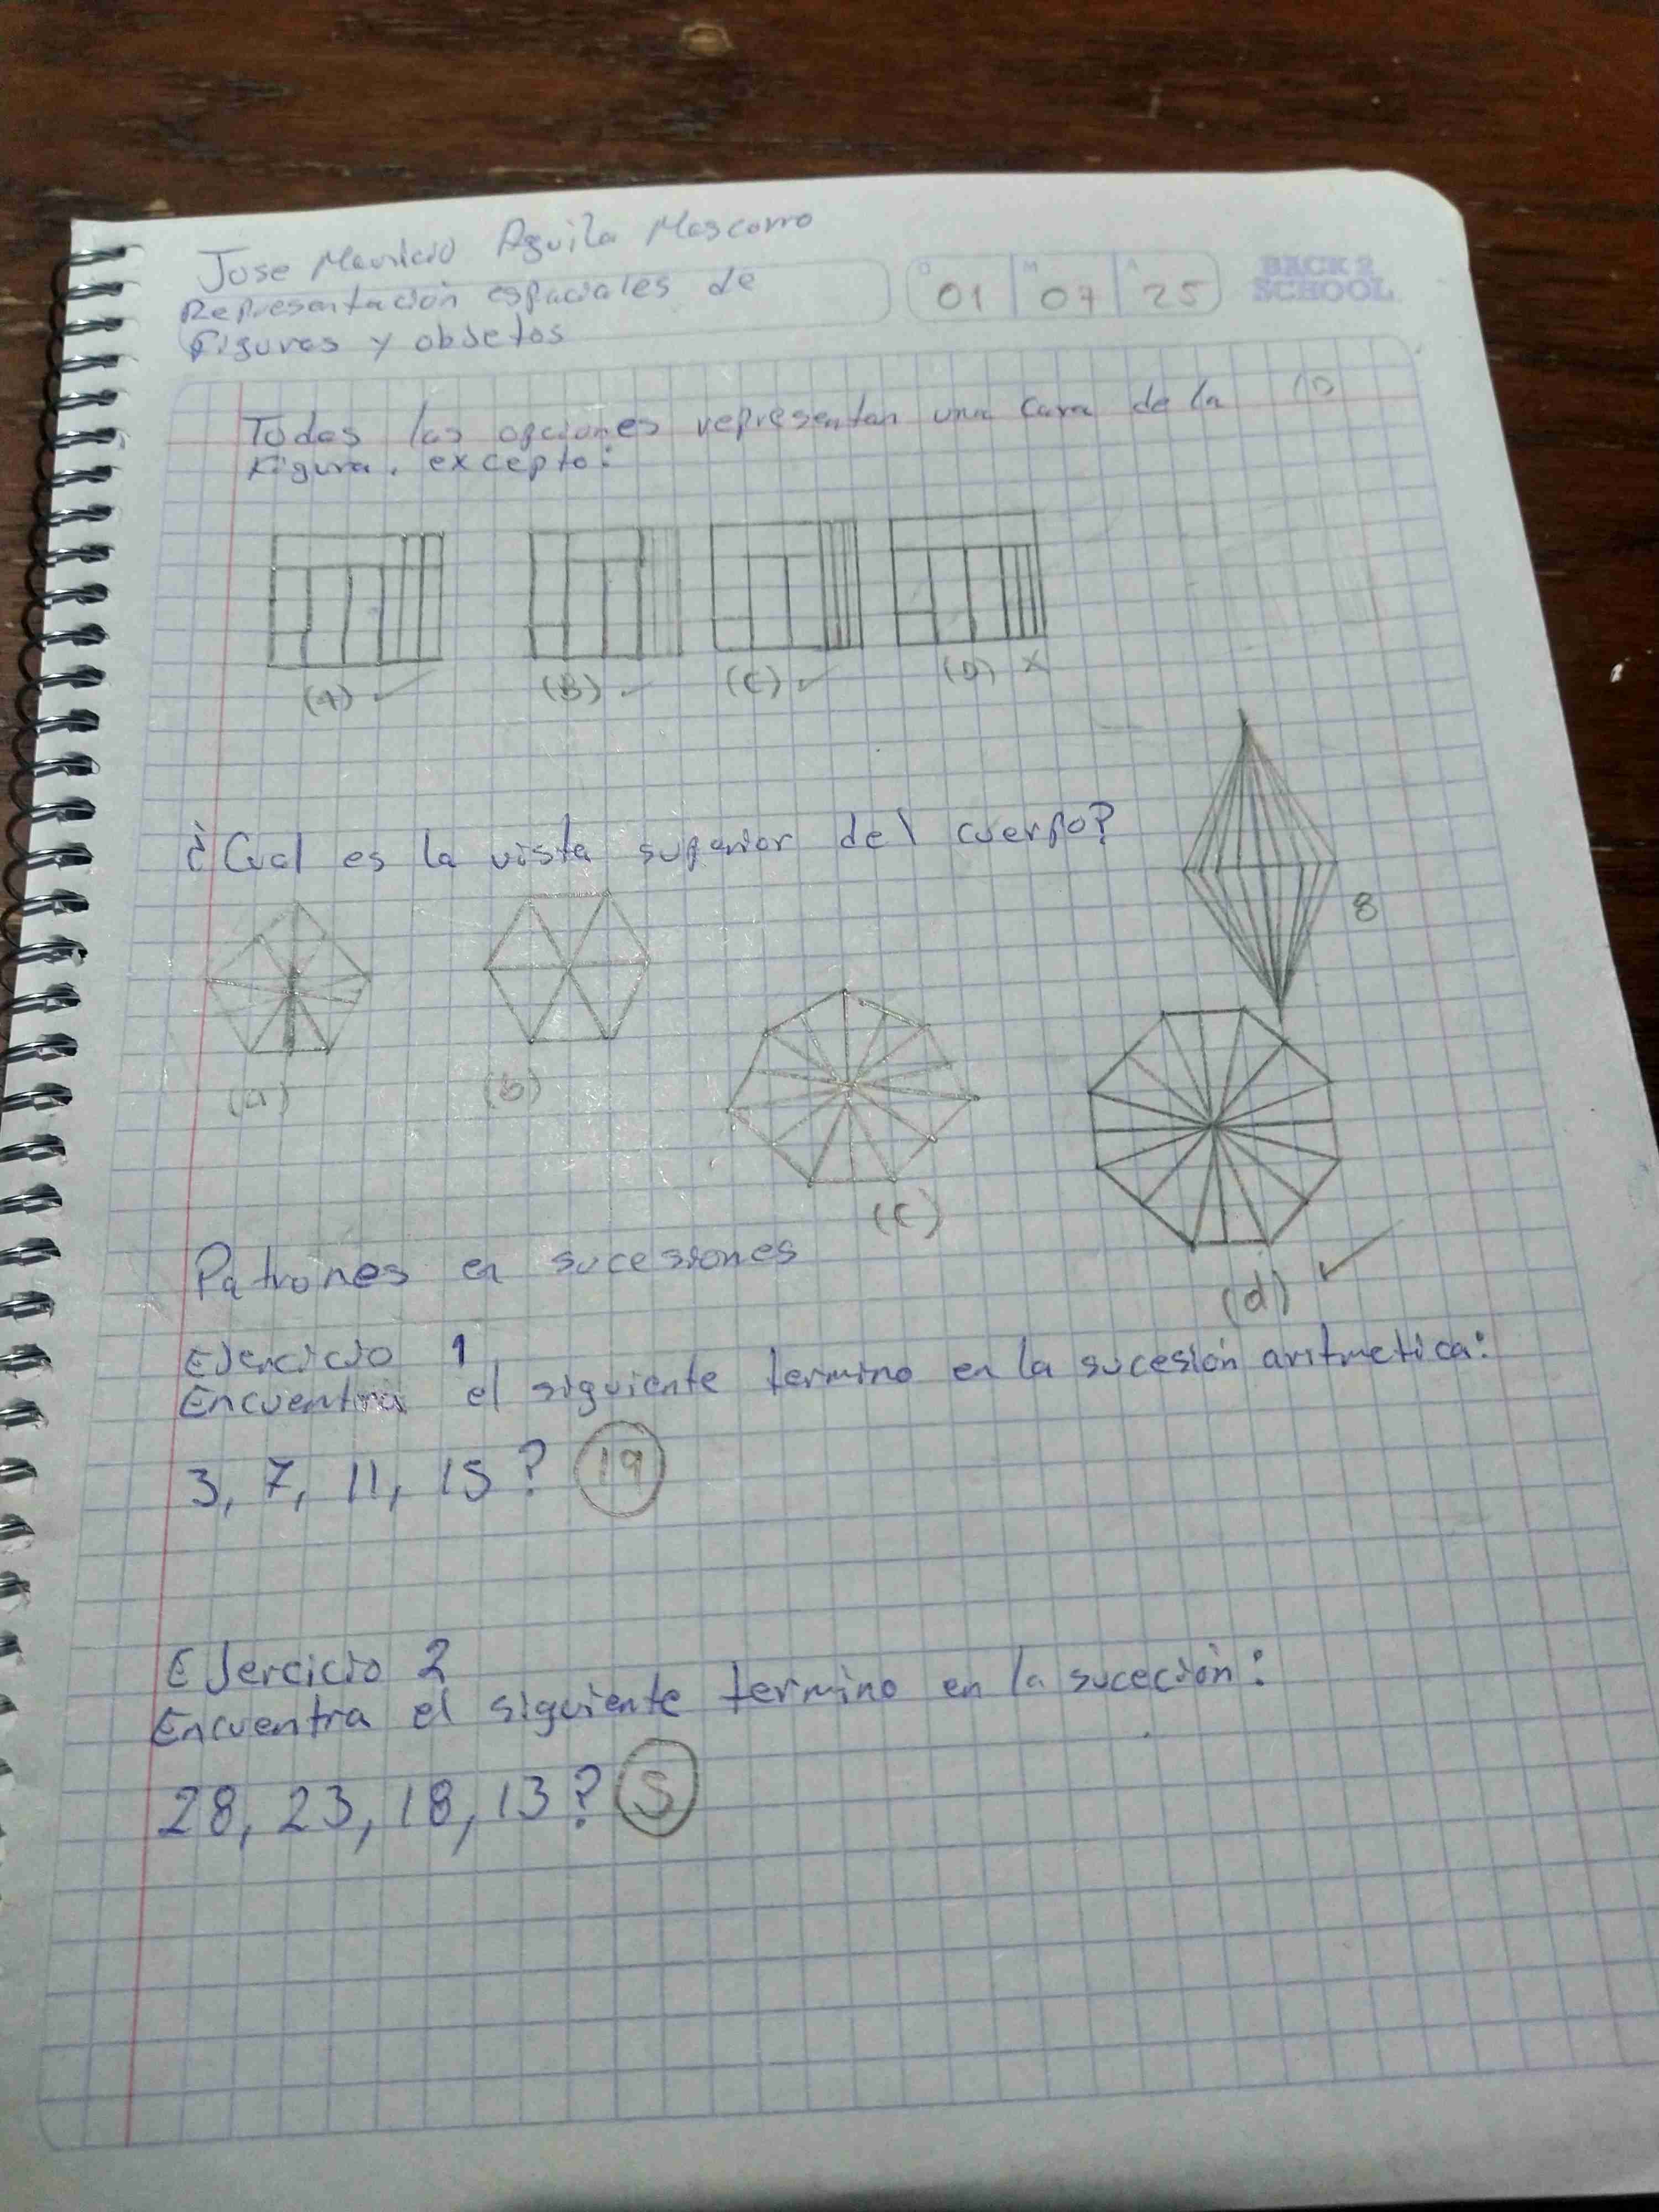 Jose Mauricio Aguila Mascorro
Representación espaciales de
Figuras y objetos
D 01 M 07 A 25
BACK 2
SCHOOL
Todas las opciones representan una cara de la
Figura. excepto:
(A) (B) (C) (D) X
¿Cual es la vista superior del cuerpo?
8
(a) (b) (c) (d)
Patrones en sucesiones
Ejercicio 1
Encuentra el siguiente termino en la sucesión aritmetica:
3, 7, 11, 15 ? 19
Ejercicio 2
Encuentra el siguiente termino en la suceción:
28, 23, 18, 13 ? 5